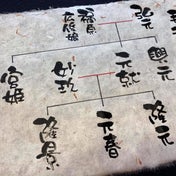 弘元
福原広俊娘
興元
元就
妙玖
宮姫
隆元
元春
隆景